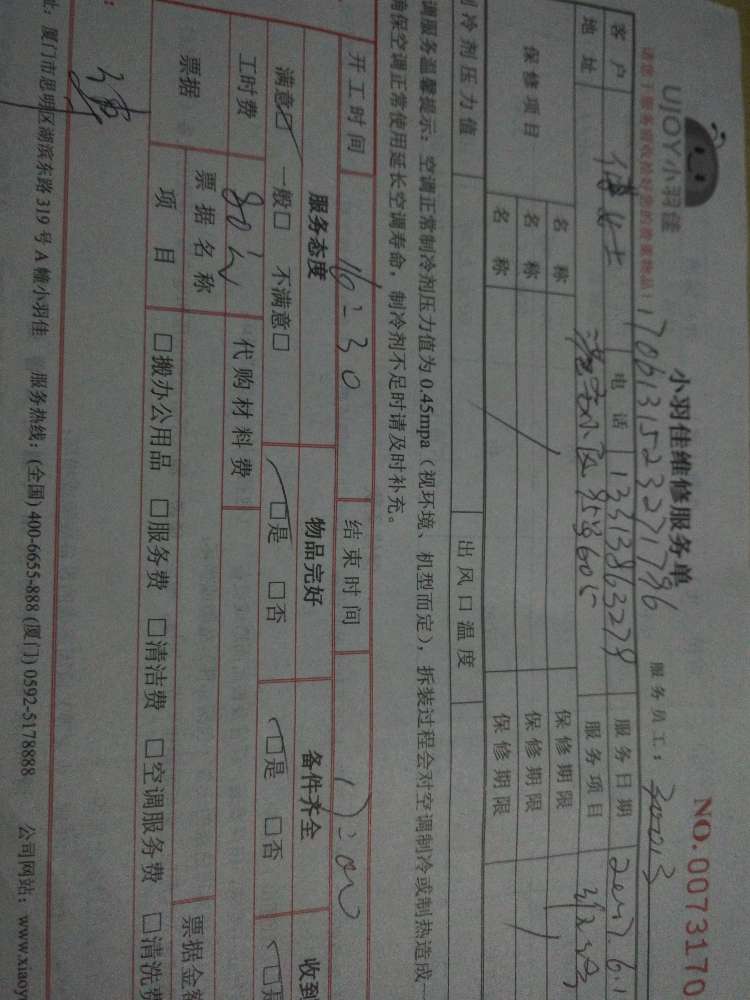 UJOY小羽佳
小羽佳维修服务单
NO.0073170
请您于服务前收拾好您的贵重物品!
17061315232271796
服务员工: 30013
客户
电话 13313863279
服务日期 2017.6.1
地址
服务项目
保修项目
名称
保修期限
名称
保修期限
名称
保修期限
制冷剂压力值
出风口温度
调服务温馨提示: 空调正常制冷剂压力值为0.45mpa(视环境、机型而定), 拆装过程会对空调制冷或制热造成
确保空调正常使用延长空调寿命, 制冷剂不足时请及时补充。
开工时间 16:30
结束时间 17:00
服务态度
物品完好
备件齐全
收到
满意□ 一般□ 不满意□
□是 □否
□是 □否
工时费 80元
代购材料费
票据
票据名称
票据金额
项目
□搬办公用品 □服务费 □清洁费 □空调服务费 □清洗费
址: 厦门市思明区湖滨东路319号A幢小羽佳 服务热线: (全国) 400-6655-888 (厦门) 0592-5178888 公司网站: www.xiaoy